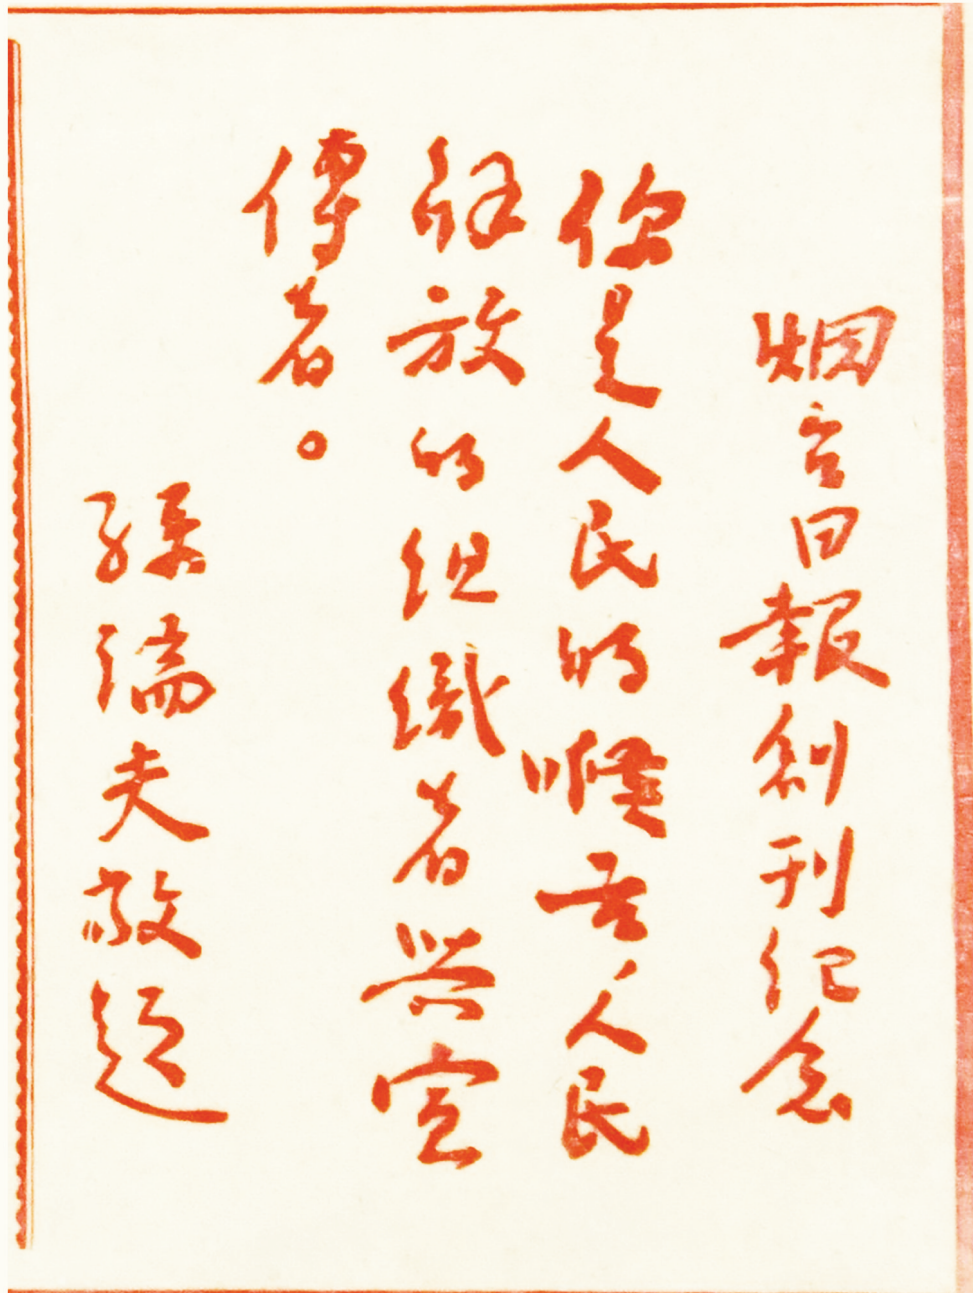 烟台日報創刊纪念
你是人民的喉舌人民
解放的组織者與宣
傳者。
孫端夫敬题